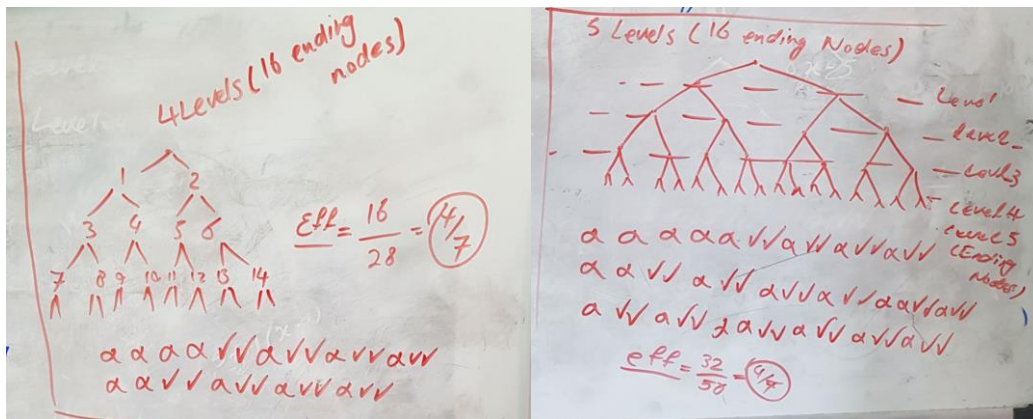 4 Levels (16 ending
nodes)
1 2
3 4 5 6
7 8 9 10 11 12 13 14
Eff = 16/28 = 4/7
α α α α √√ α √√ α √√ α √√
α α √√ α √√ α √√ α √√
5 Levels (16 ending Nodes)
Level
Level
Level 3
Level 4
Level 5
(Ending
Nodes)
α α α α α √√ α √√ α √√ α √√
α α √√ α √√ α √√ α √√ α α √√ α √√
eff = 32/58 =